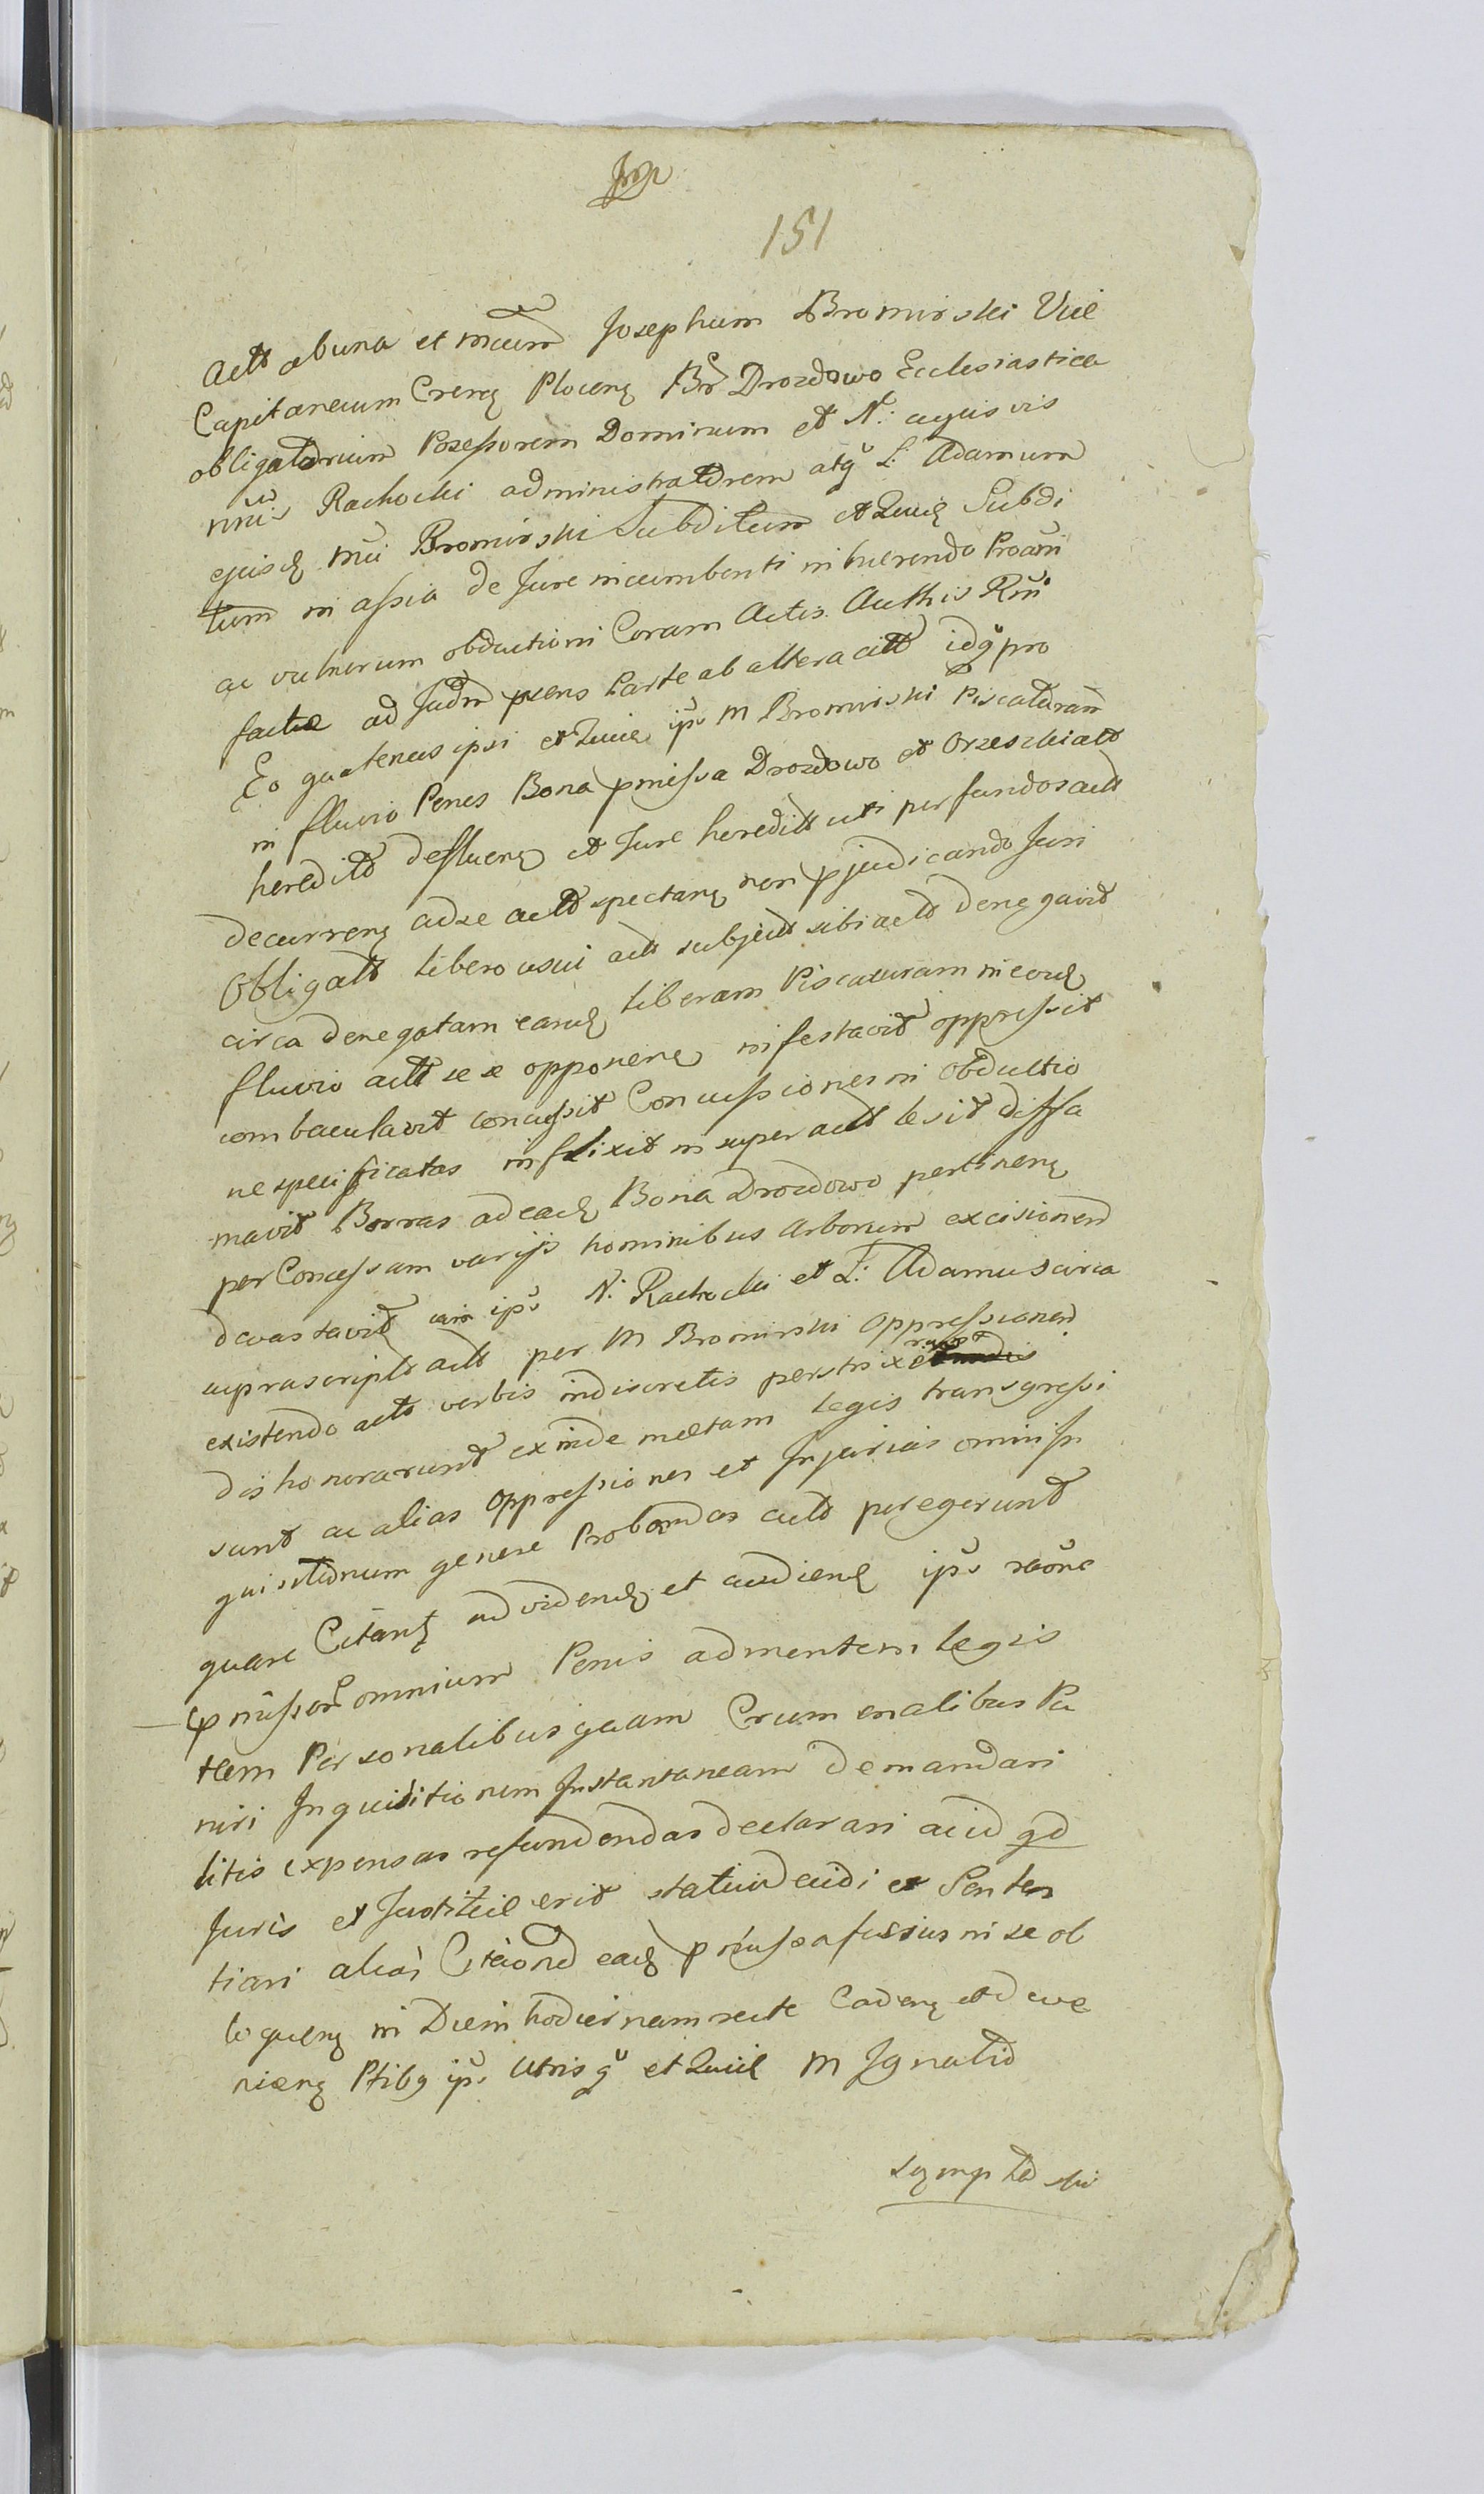 151
Actt ab una et mcum Josephum Bromirski Vice
Capitaneum Cren Plocen Br Drozdowo Ecclesiastica
obligatorium Possessorem Dominum et N: cujusvis
nnis Rachocki administratorem atq L: Adamum
ejusd mci Bromirski Subditum et Suum Subdi
tum in assia de Jure incumbenti inhærendo Proam
ac vulnerum obductioni Coram Actis Authis Rm
factæ ad Judm præns Parte ab altera citt idq pro
Eo quatenus ipsi et ips M Bromirski Piscaturam
in fluvio Penes Bona pmissa Drozdowo et Orzeszki att
heredit defluen et Jure hereditt uti per fundos actt
decurren ad se actt spectan non pjudicando Juri
Obligatt libero usui actt subject sibi actt denegavit
circa denegatam eand liberam Piscaturam in eod
fluvio actt se se opponen infestavit oppressit
combaculavit concussit Concussiones in obductio
ne specificatas inflixit insuper actt lesit diffa
mavit Borras ad ead Bona Drozdowo pertinen
per Concessam varijs hominibus Arborum excisionem
devastavit ips N: Rachocki et L: Adamus circa
suprascript actt per M Bromirski Oppressionem
existendo actt verbis indiscretis perstrixerunt
dishonorarunt exinde mletam legis transgressi
sunt ac alias Oppressiones et Injurias omni In
quisitionum genere Probandas actt peregerunt
quare Citant ad vidend et audiend ips raone
pmissor omnium Penis ad mentem legis
tam Personalibus quam Crumenalibus Pu
niri Inquisitionem Instantaneam demandari
litis expensas refundendas declarari acid qd
Juris et Justitiæ erit statui decidi et Senten
tiari alias Citaond ead pmissa fusius in se ob
loquen in Diem hodiernam recte Caden et deve
nien Ptibq ips Utrisq et M Ignatio
Szmp